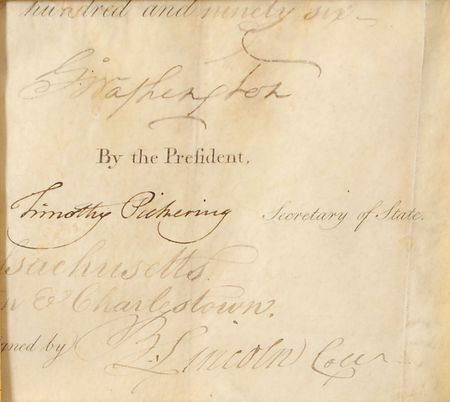 hundred and ninety six
G:Washington
By the Preſident,
Timothy Pickering Secretary of State.
sachusetts.
n & Charlestown.
ned by B. Lincoln Coll